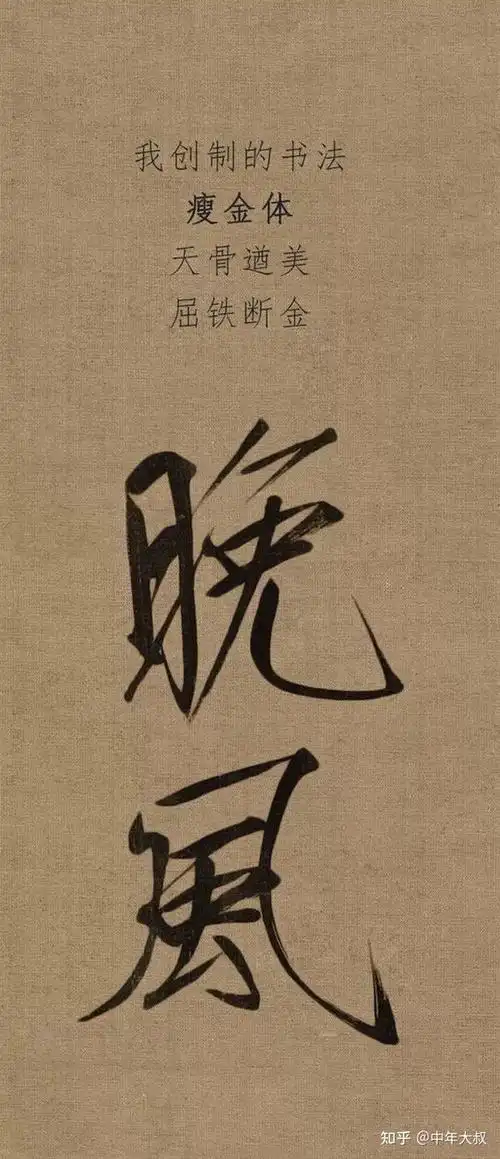 我创制的书法
瘦金体
天骨遒美
屈铁断金
晚
風
知乎 @中年大叔